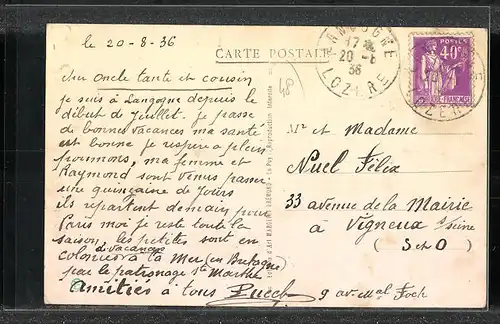 le 20-8-36
CARTE POSTALE
LANGOGNE
17
20-8
36
LOZERE
POSTES
40c
48
cher oncle tante et cousin
je suis à Langogne depuis le
début de Juillet. je passe
de bonnes vacances ma santé
est bonne je respire a pleins
poummons, ma femme et
Raymond sont venus passer
une quinzaine de Jours
ils repartent demain pour
Paris moi je reste toute la
saison, les petites sont en
de vacances
colonies à la Mer (en Bretagne)
par le patronage Ste Marthe
Amitiés à tous
9 av. Mal Foch
Reproduction interdite
Mr et Madame
Nuel Félix
33 avenue de la Mairie
à Vigneux s/seine
(S et O)